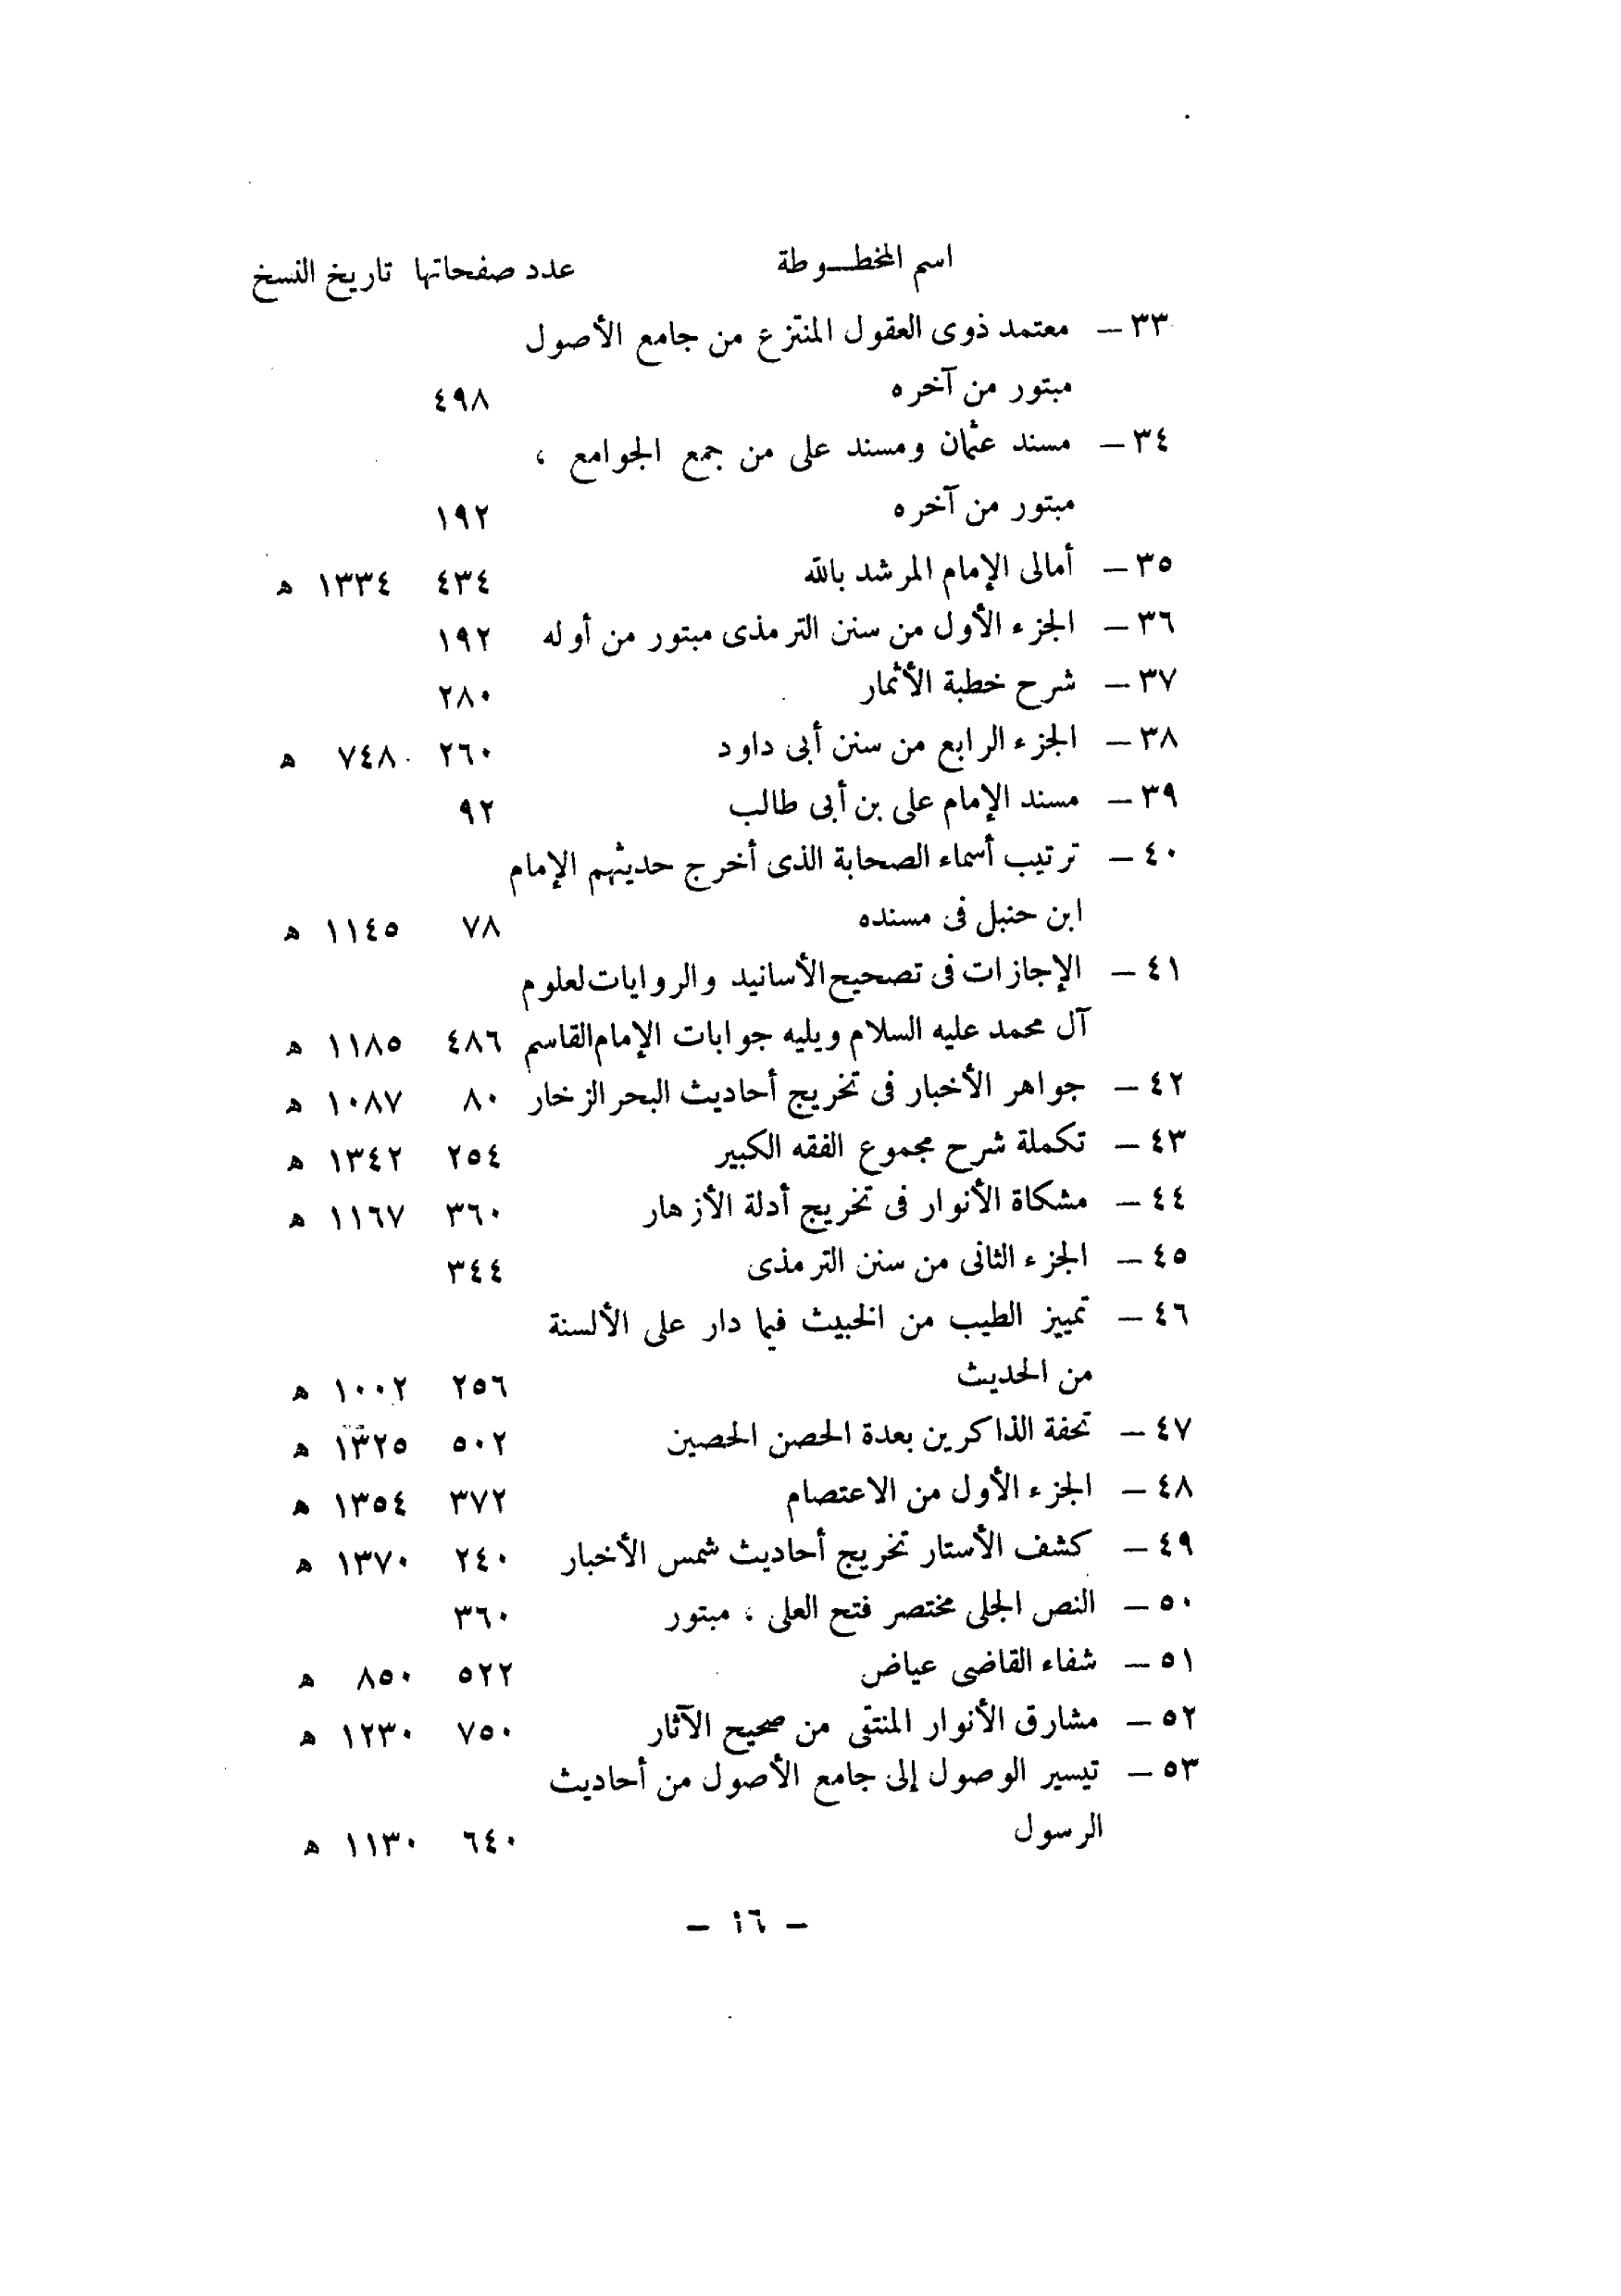 اسم المخطـــوطة عدد صفحاتها تاريخ النسخ
٣٣ — معتمد ذوى العقول المنتزع من جامع الأصول
مبتور من آخره ٤٩٨
٣٤ — مسند عثمان ومسند على من جمع الجوامع ،
مبتور من آخره ١٩٢
٣٥ — أمالى الإمام المرشد بالله ٤٣٤ ١٣٣٤ ه
٣٦ — الجزء الأول من سنن الترمذى مبتور من أوله ١٩٢
٣٧ — شرح خطبة الأثمار ٢٨٠
٣٨ — الجزء الرابع من سنن أبى داود ٢٦٠ ٧٤٨ ه
٣٩ — مسند الإمام على بن أبى طالب ٩٢
٤٠ — ترتيب أسماء الصحابة الذى أخرج حديثهم الإمام
ابن حنبل فى مسنده ٧٨ ١١٤٥ ه
٤١ — الإجازات فى تصحيح الأسانيد والروايات لعلوم
آل محمد عليه السلام ويليه جوابات الإمام القاسم ٤٨٦ ١١٨٥ ه
٤٢ — جواهر الأخبار فى تخريج أحاديث البحر الزخار ٨٠ ١٠٨٧ ه
٤٣ — تكملة شرح مجموع الفقه الكبير ٢٥٤ ١٣٤٢ ه
٤٤ — مشكاة الأنوار فى تخريج أدلة الأزهار ٣٦٠ ١١٦٧ ه
٤٥ — الجزء الثانى من سنن الترمذى ٣٤٤
٤٦ — تمييز الطيب من الخبيث فيما دار على الألسنة
من الحديث ٢٥٦ ١٠٠٢ ه
٤٧ — تحفة الذاكرين بعدة الحصن الحصين ٥٠٢ ١٣٢٥ ه
٤٨ — الجزء الأول من الاعتصام ٣٧٢ ١٣٥٤ ه
٤٩ — كشف الأستار تخريج أحاديث شمس الأخبار ٢٤٠ ١٣٧٠ ه
٥٠ — النص الجلى مختصر فتح العلى ، مبتور ٣٦٠
٥١ — شفاء القاضى عياض ٥٢٢ ٨٥٠ ه
٥٢ — مشارق الأنوار المنتقى من صحيح الآثار ٧٥٠ ١٢٣٠ ه
٥٣ — تيسير الوصول إلى جامع الأصول من أحاديث
الرسول ٦٤٠ ١١٣٠ ه
— ١٦ —